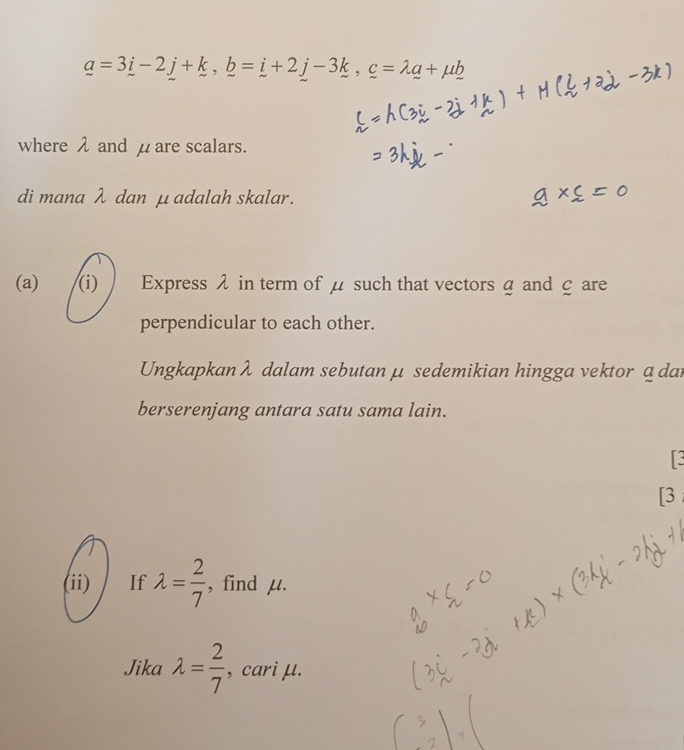 a = 3i − 2j + k , b = i + 2j − 3k , c = λa + μb
c = λ(3i − 2j + k) + μ(i + 2j − 3k)
= 3λi −
where λ and μ are scalars.
di mana λ dan μ adalah skalar.
a × c = 0
(a) (i) Express λ in term of μ such that vectors a and c are
perpendicular to each other.
Ungkapkan λ dalam sebutan μ sedemikian hingga vektor a dan
berserenjang antara satu sama lain.
[3
[3
(ii) If λ = 2/7, find μ.
a × c = 0
Jika λ = 2/7, cari μ.
(3i − 2j + k) × (3λi − 2λj +
( 3
− 2 ) (